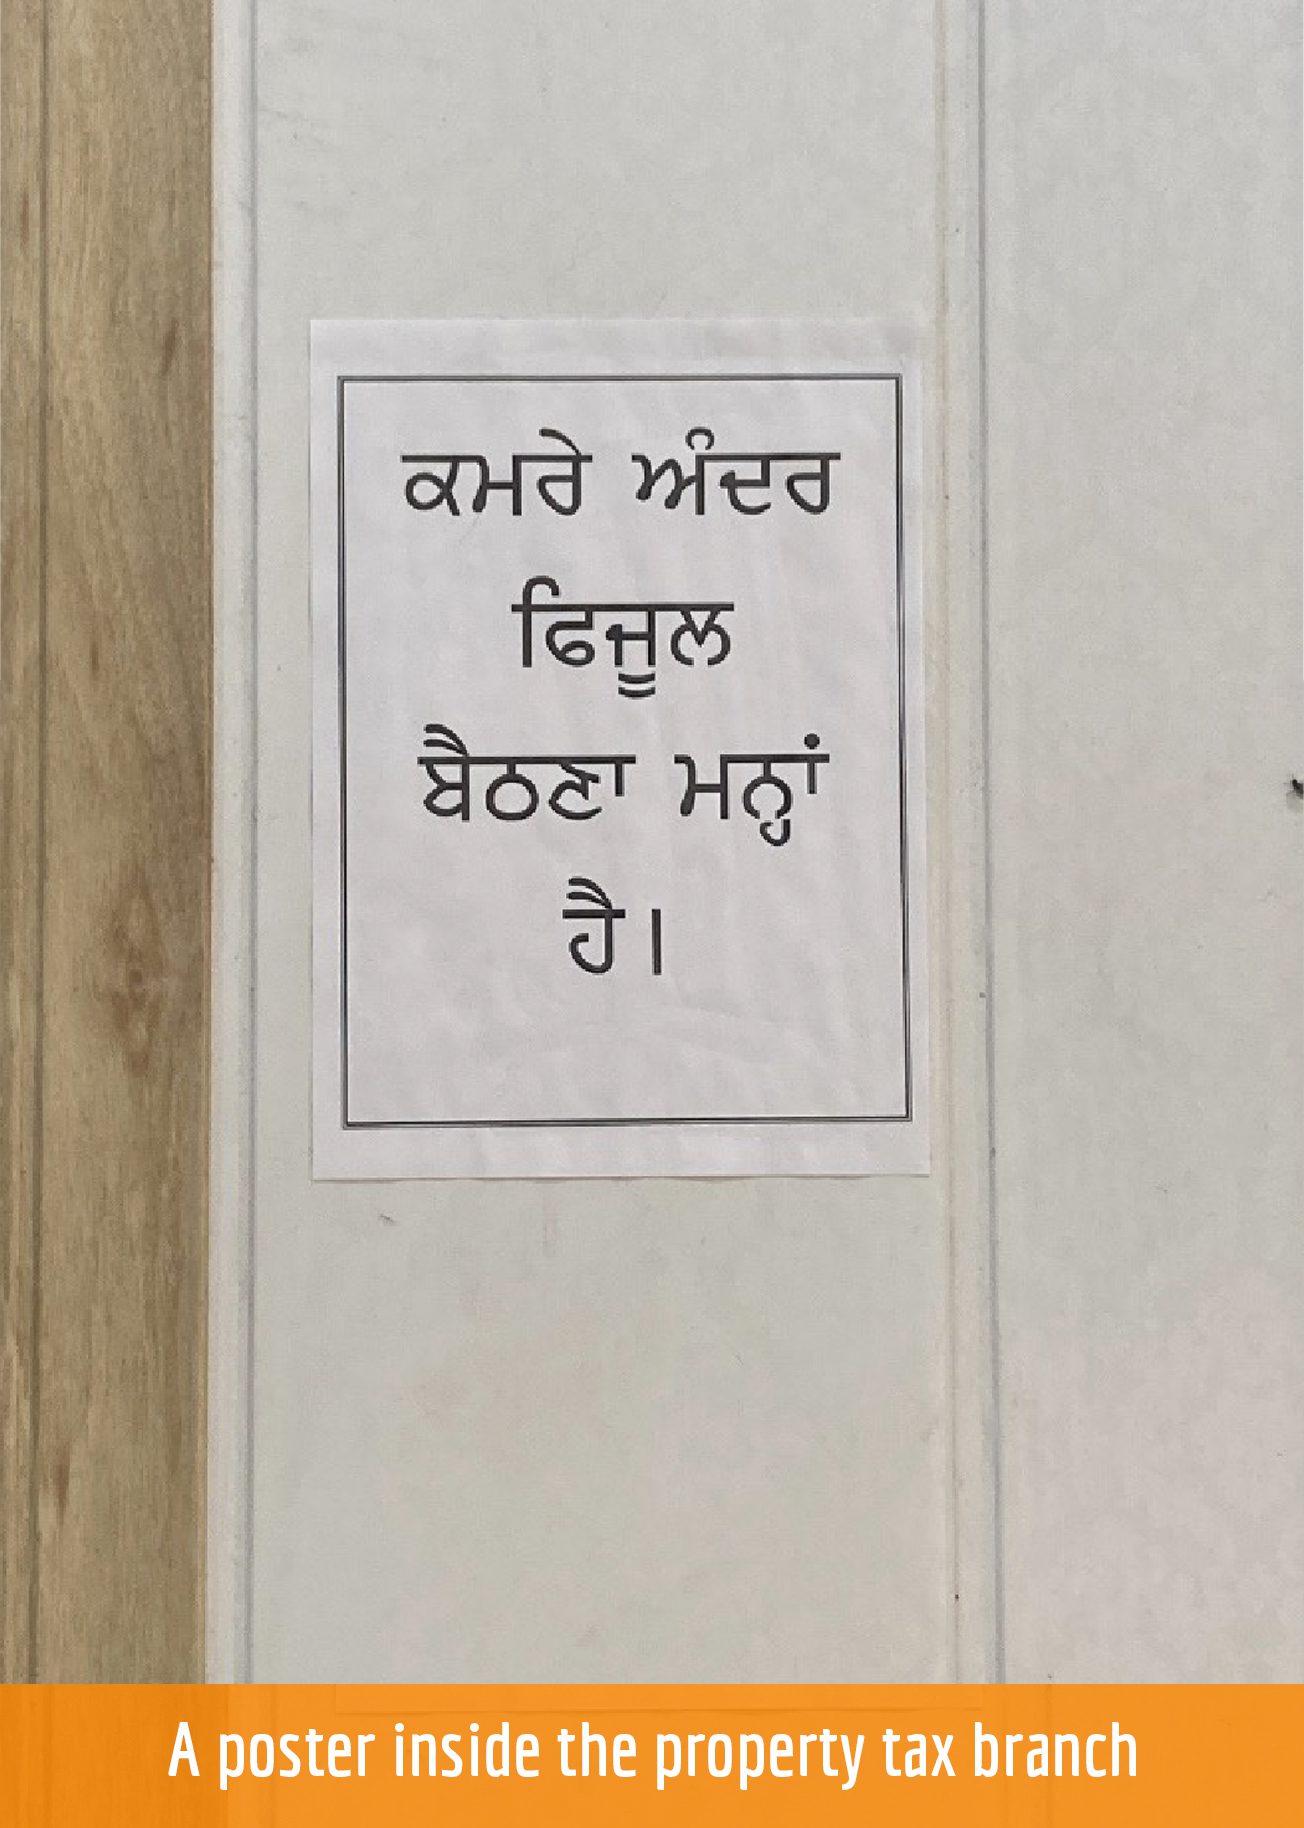 ਕਮਰੇ ਅੰਦਰ
ਫਿਜੂਲ
ਬੈਠਣਾ ਮਨ੍ਹਾਂ
ਹੈ।
A poster inside the property tax branch